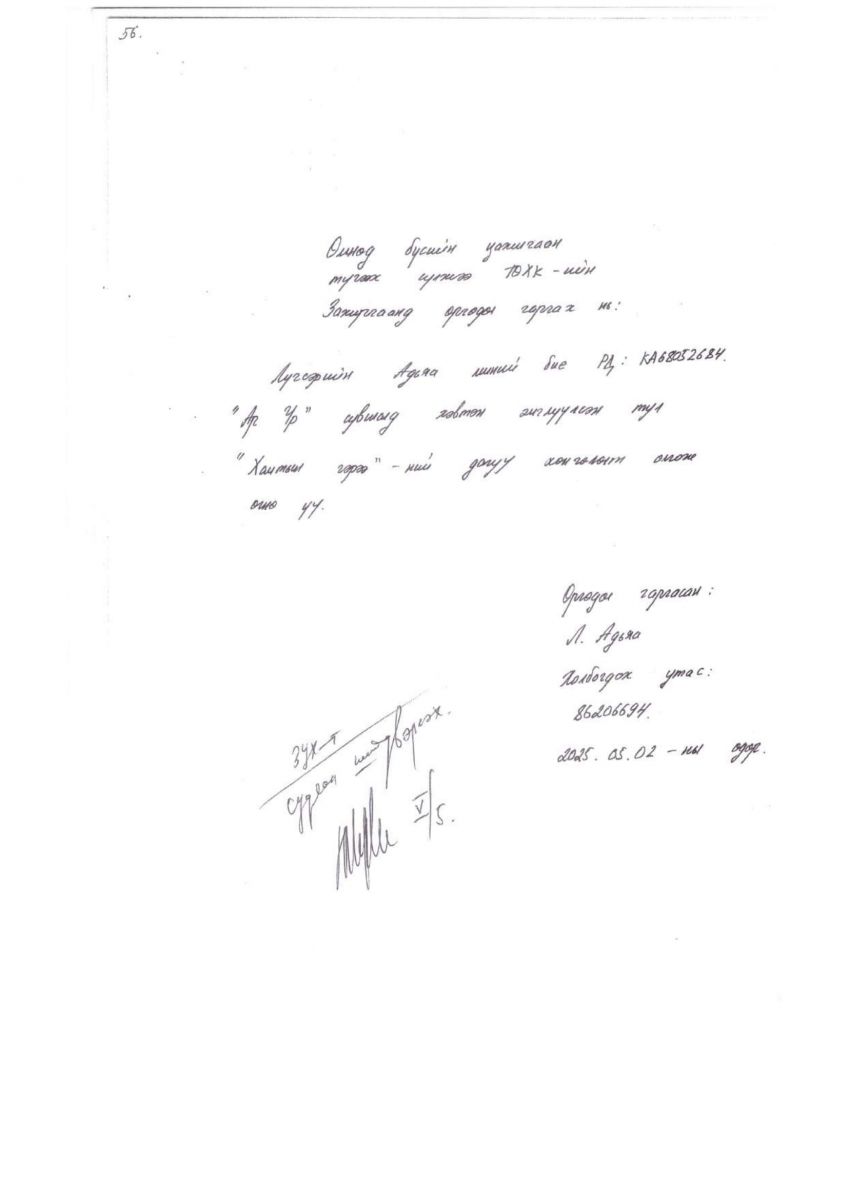 56.
Өмнөд бүсийн цахилгаан
түгээх сүлжээ ТӨХК-ийн
Захиргаанд өргөдөл гаргах нь:
Лүгсэрийн Адьяа миний бие РД: КА68052684.
"Ар Үр" сувилалд хэвтэн эмчлүүлсэн тул
"Хамтын гэрээ"-ний дагуу хөнгөлөлт олгож
өгнө үү.
Өргөдөл гаргасан:
Л. Адьяа
Холбогдох утас:
86206694.
2025.05.02-ны өдөр.
ЗУХ-т
судлан шийдвэрлэх.
V/5.